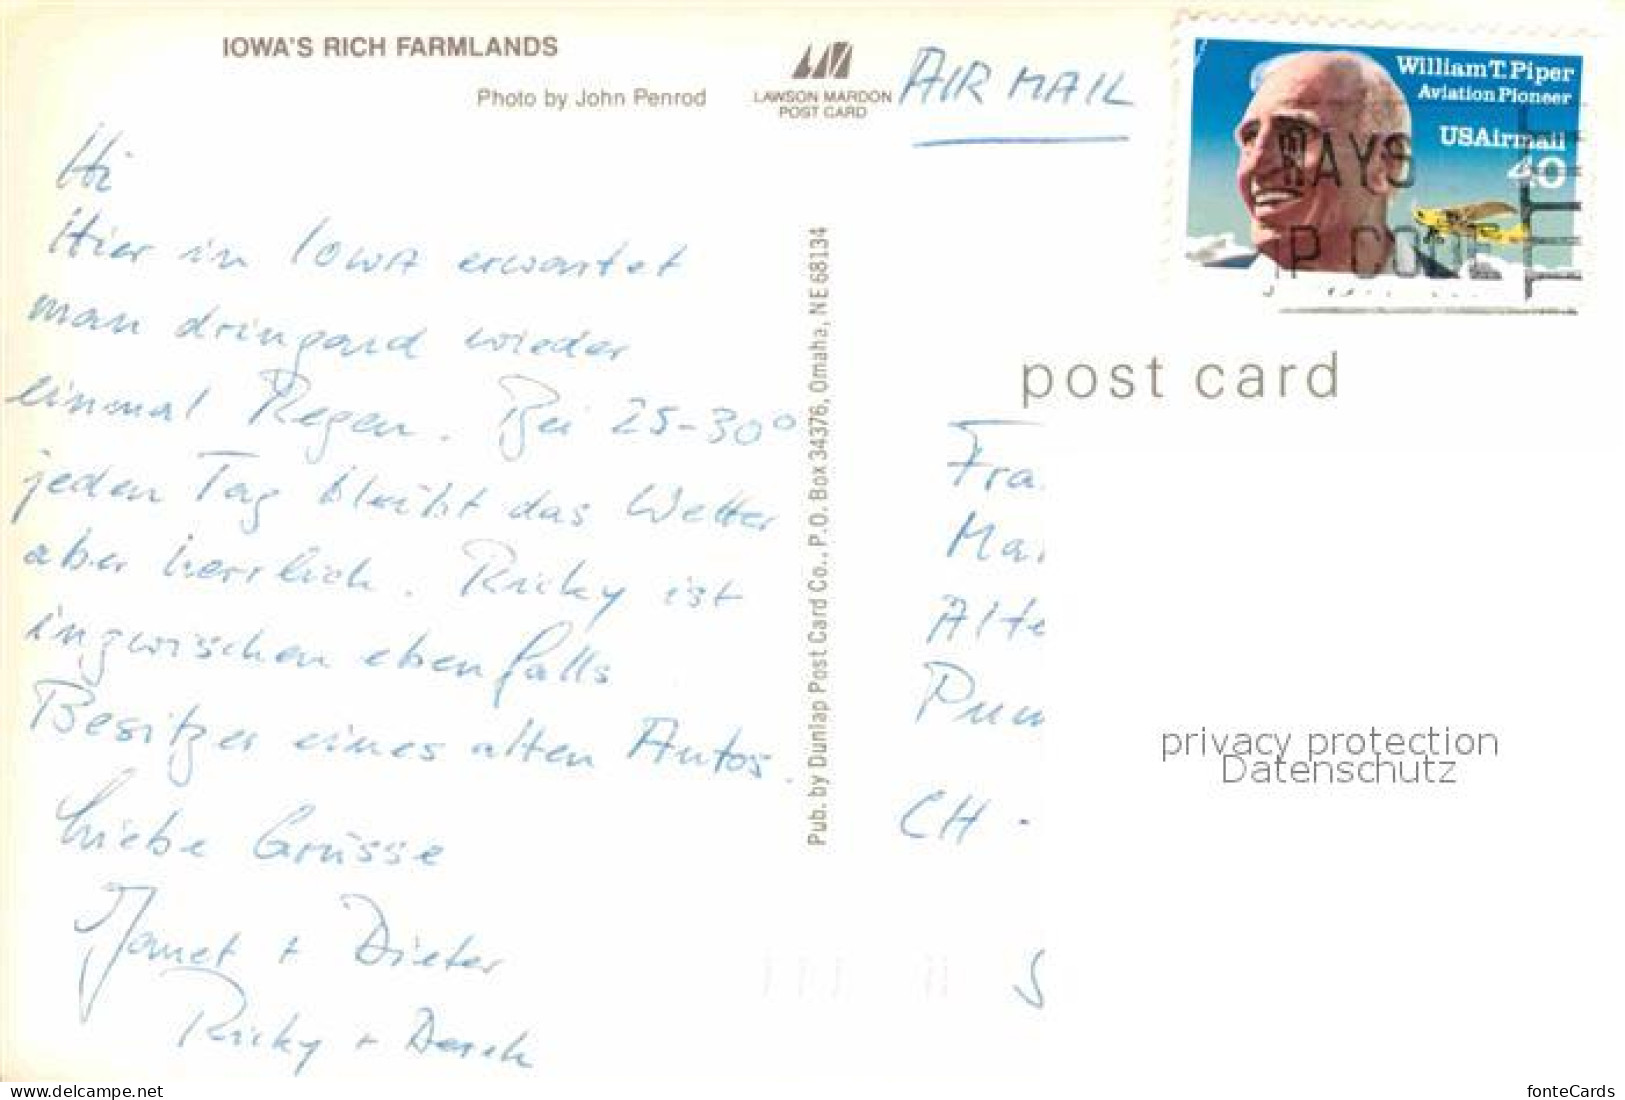 IOWA'S RICH FARMLANDS
Photo by John Penrod
LAWSON MARDON
POST CARD
AIR MAIL
William T. Piper
Aviation Pioneer
USAirmail
40
WAYS
IP CODE
Hi
Hier in IOWA erwartet
man dringend wieder
einmal Regen. Bei 25-30°
jeden Tag bleibt das Wetter
aber herrlich. Ricky ist
inzwischen ebenfalls
Besitzer eines alten Autos.
Liebe Grüsse
Janet + Dieter
Ricky + Derek
Pub. by Dunlap Post Card Co., P.O. Box 34376, Omaha, NE 68134
post card
Fra
Mar
Alte
Pum
CH -
S
privacy protection
Datenschutz
www.delcampe.net
fonteCards